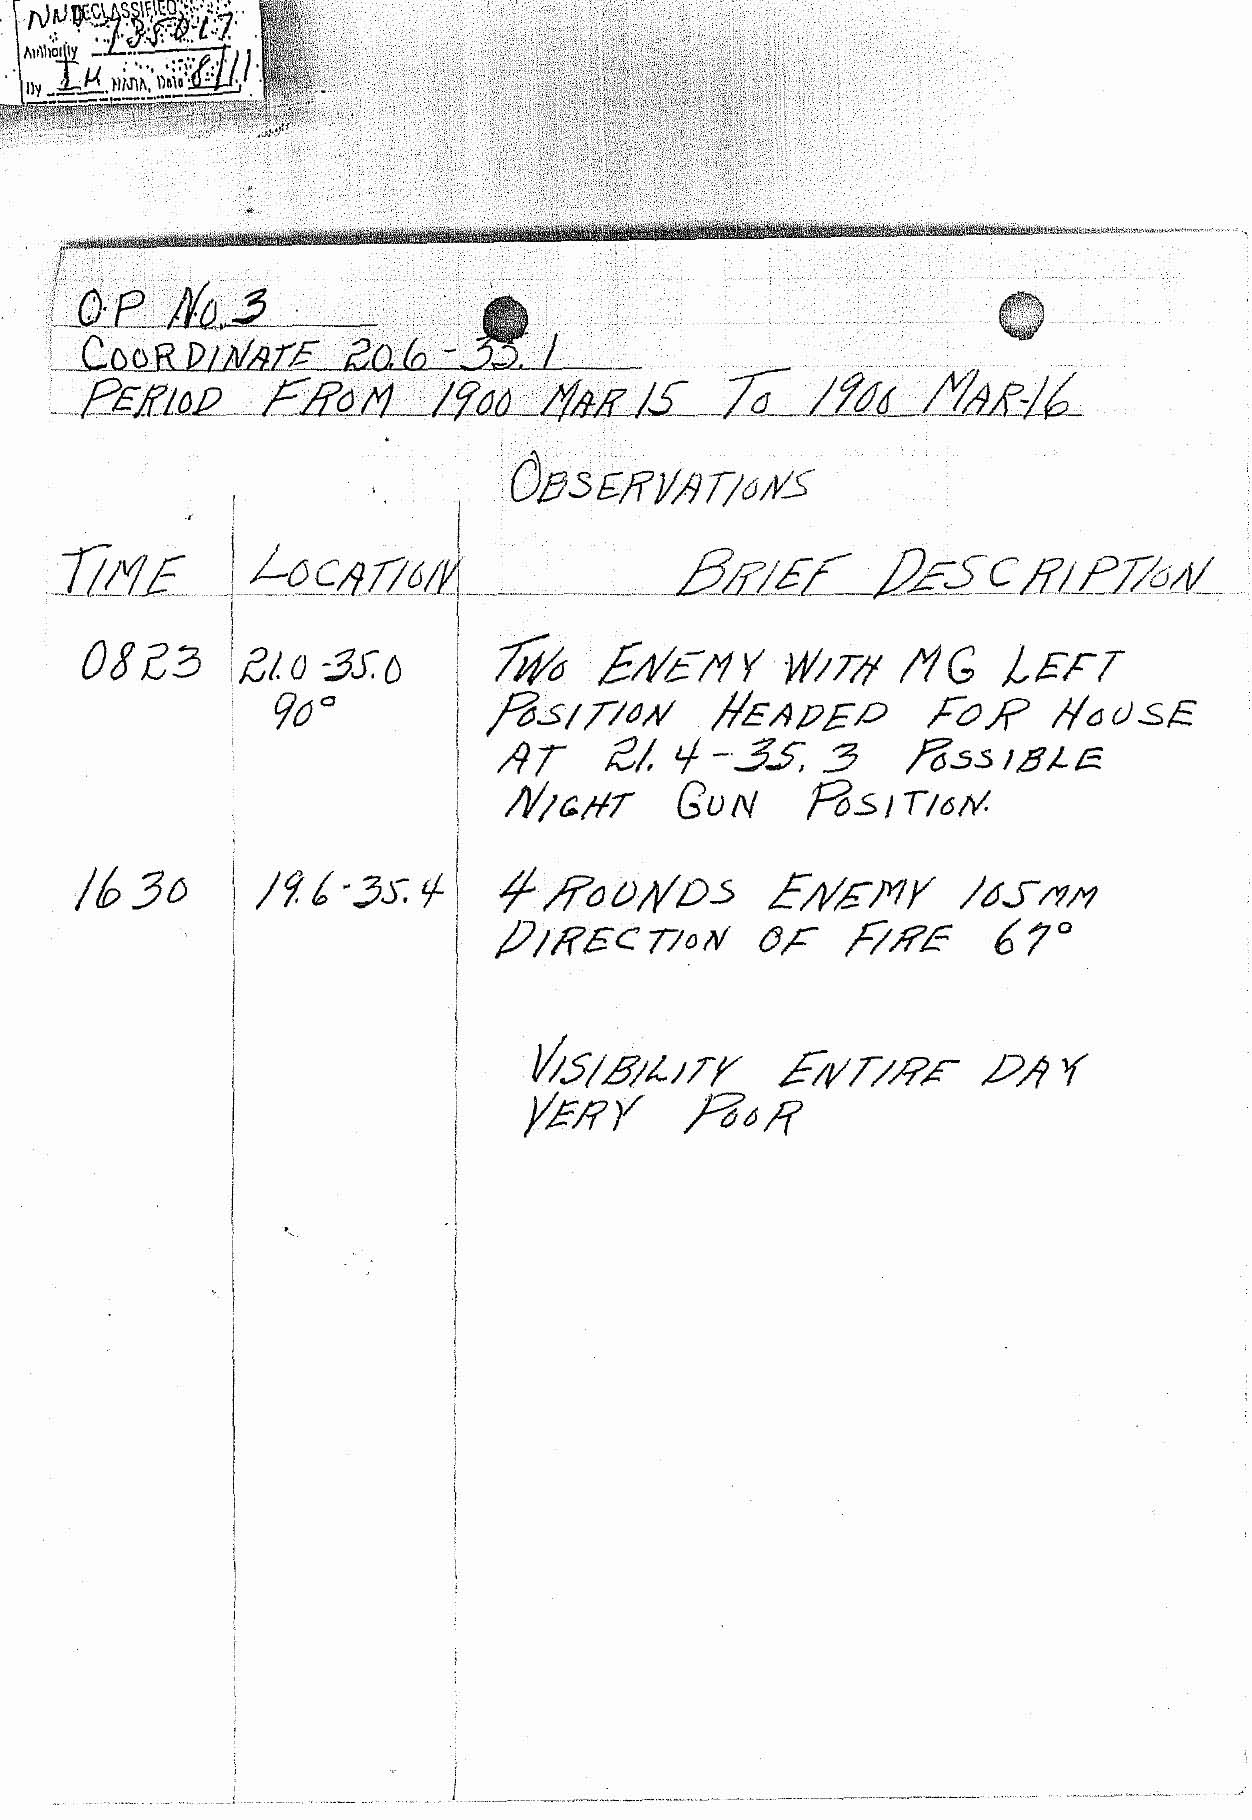 NND DECLASSIFIED
Authority 735017
By IH NARA, Date 8/11
O.P No. 3
COORDINATE 20.6 - 35.1
PERIOD FROM 1900 MAR 15 TO 1900 MAR-16
OBSERVATIONS
TIME LOCATION BRIEF DESCRIPTION
0823 21.0-35.0 TWO ENEMY WITH MG LEFT
90° POSITION HEADED FOR HOUSE
AT 21.4-35.3 POSSIBLE
NIGHT GUN POSITION.
1630 19.6-35.4 4 ROUNDS ENEMY 105MM
DIRECTION OF FIRE 67°
VISIBILITY ENTIRE DAY
VERY POOR